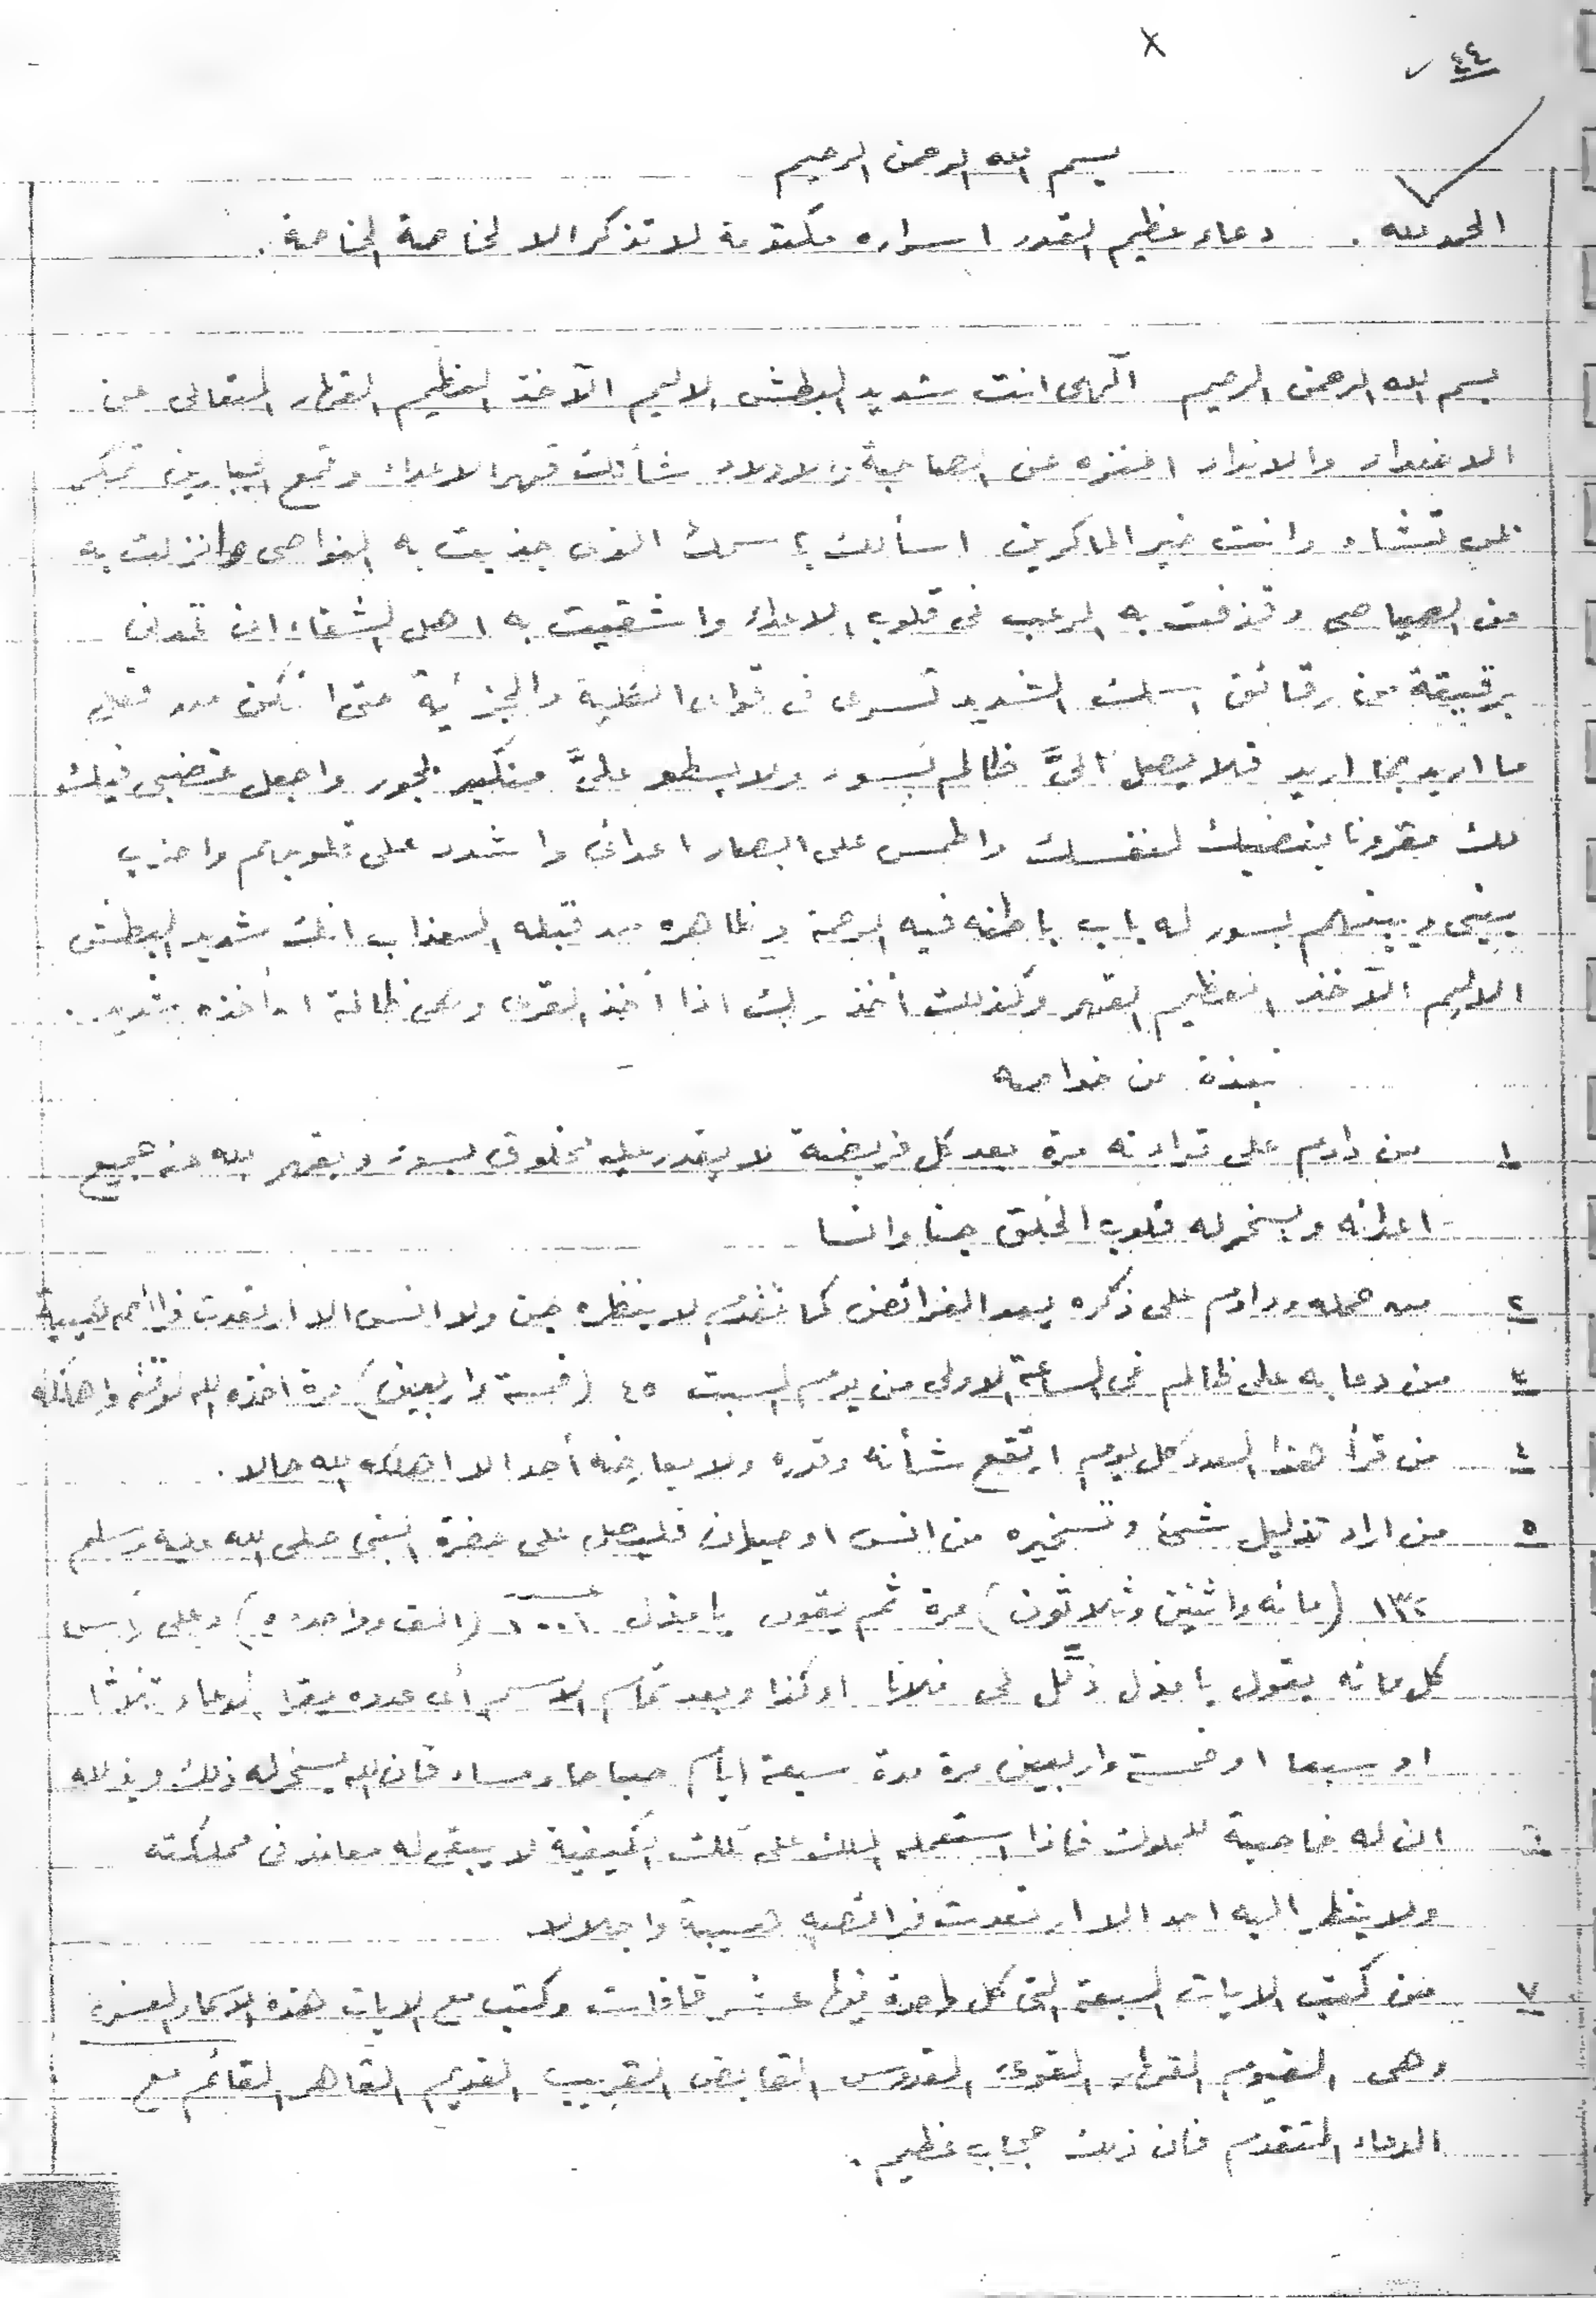 ٤٤
بسم الله الرحمن الرحيم
الحمد لله . دعاء عظيم القدر اسراره مكتومة لا تذكر الا لخاصة الخاصة .
بسم الله الرحمن الرحيم الهى انت شديد البطش الاليم الآخذ العظيم القهار المتعالى عن
الاضداد والانداد المنزه عن الصاحبة والاولاد شأنك قهر الاعداء وقمع الجبارين تمكر
بمن تشاء وانت خير الماكرين اسألك باسمك الذى جذبت به النواصى وانزلت به
من الصياصى وقذفت به الرعب فى قلوب الاعداء واشقيت به اهل الشقاء ان تمدنى
برقيقة من رقائق اسمك الشديد تسرى فى قواى الكلية والجزئية حتى اتمكن من فعل
ما اريد بما اريد فلا يصل الىَّ ظالم بسوء ولا يسطو علىَّ متكبر بجور واجعل غضبى فيك
لك مقرونا بغضبك لنفسك واطمس على ابصار اعدائى واشدد على قلوبهم واضرب
بينى وبينهم بسور له باب باطنه فيه الرحمة وظاهره من قبله العذاب انك شديد البطش
الاليم الآخذ العظيم القهر وكذلك اخذ ربك اذا أخذ القرى وهى ظالمة ان أخذه شديد .
نبذة من خواصه
١ من داوم على قراءته مرة بعد كل فريضة لا يقدر عليه مخلوق بسوء ويقهر الله عنه جميع
اعدائه ويسخر له قلوب الخلق جنا وانسا
٢ من حمله وداوم على ذكره بعد الفرائض كما تقدم لا ينظره جن ولا انس الا ارتعدت فرائصه لهيبته
٣ من دعا به على ظالم فى الساعة الاولى من يوم السبت ٤٥ (خمسة واربعين) مرة اخذه الله لوقته واهلكه
٤ من قرأ هذا العدد كل يوم ارتفع شأنه وقدره ولا يعارضه أحد الا اهلكه الله حالا .
٥ من اراد تذليل شئ وتسخيره من انس او حيوان فليصل على حضرة النبى صلى الله عليه وسلم
١٣٢ (مائه واثنين وثلاثون) مرة ثم يقول يا مذل ١٠٠١ (الف وواحده) وعلى رأس
كل مائه يقول يا مذل ذلّل لى فلانا او كذا وبعد تمام الاسم أى عدده يقرا الدعاء ثلاثا
او سبعا او خمسة واربعين مرة مدة سبعة ايام صباحا ومساء فان الله يسخر له ذلك ويذلله
٦ ان له خاصية للملوك فاذا استعمله الملك على تلك الكيفية لا يبقى له معاند فى مملكته
ولا ينظر اليه احد الا ارتعدت فرائصه هيبة واجلالا
٧ من كتب الايات السبعة التى كل واحدة فيها عشر قافات وكتب مع الايات هذه الاسماء العشره
وهى القيوم القهار القوى القدوس القابض القريب القديم القاهر القائم مع
الدعاء المتقدم فان ذلك حجاب عظيم .